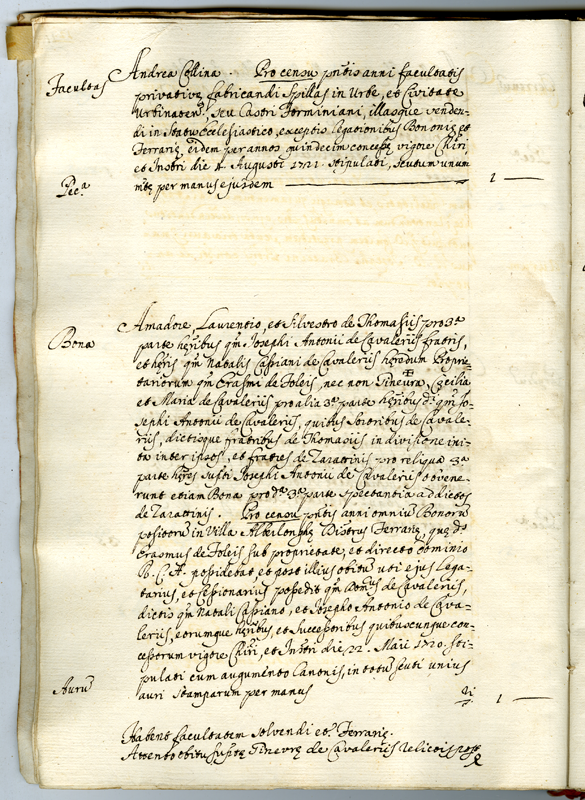 Facultas
Andrea Collina . Pro censu pñtis anni facultatis
privativæ fabricandi Spillas in Urbe, et Civitate
Urbinaten', seu Castri Firminiani, illasque venden-
di in Statu Ecclesiastico, exceptis legationibus Bononiæ et
Ferrariæ, eidem per annos quindecim concessæ vigore Chiri
et Instri die 4. Augusti 1721. Stipulati, scutum unum
Pec.ª mtæ per manus ejusdem 1 —
Bona
Amadore, Laurentio, et Silvestro de Thomasiis pro 3.ª
parte hæribus qm Josephi Antonii de Cavaleriis fratris,
et hæris qm Natalis Cassiani de Cavaleriis hæredum Proprie-
tariorum qm Erasmi de Foleis, nec non Ginevra, Cæcilia
et Maria de Cavaleriis pro alia 3.ª parte hæribus d.i qm Jo-
sephi Antonii de Cavaleriis, quibus Sororibus de Cavale-
riis, dictisque fratribus de Thomasiis in divisione ini-
ta inter ipsos, et fratres de Zaratinis pro reliqua 3.ª
parte hæres susti Josephi Antonii de Cavaleriis obvene-
runt etiam Bona pro d.ª 3.ª parte spectantia ad dictos
de Zaratinis . Pro censu pñtis anni omnium Bonorum
positorum in Villa Albersonis Districtus Ferrariæ, quæ d.s
Erasmus de Foleis sub proprietate, et directo dominio
R. C. A. possidebat, et post illius obitum uti ejus Lega-
tarius, et Cessionarius possedit qm Bonus de Cavaleriis,
dictis qm Natali Cassiano, et Josepho Antonio de Cava-
leriis, eorumque hæribus, et Successoribus quibuscunque con-
cessorum vigore Chiri, et Instri die 22. Maii 1720. sti-
pulati cum augumento Canonis, in totum scuti unius
Aurum auri Stamparum per manus 1 —
Habent facultatem solvendi etc. Ferrariæ.
Attento obitu suptæ Ginevræ de Cavaleriis